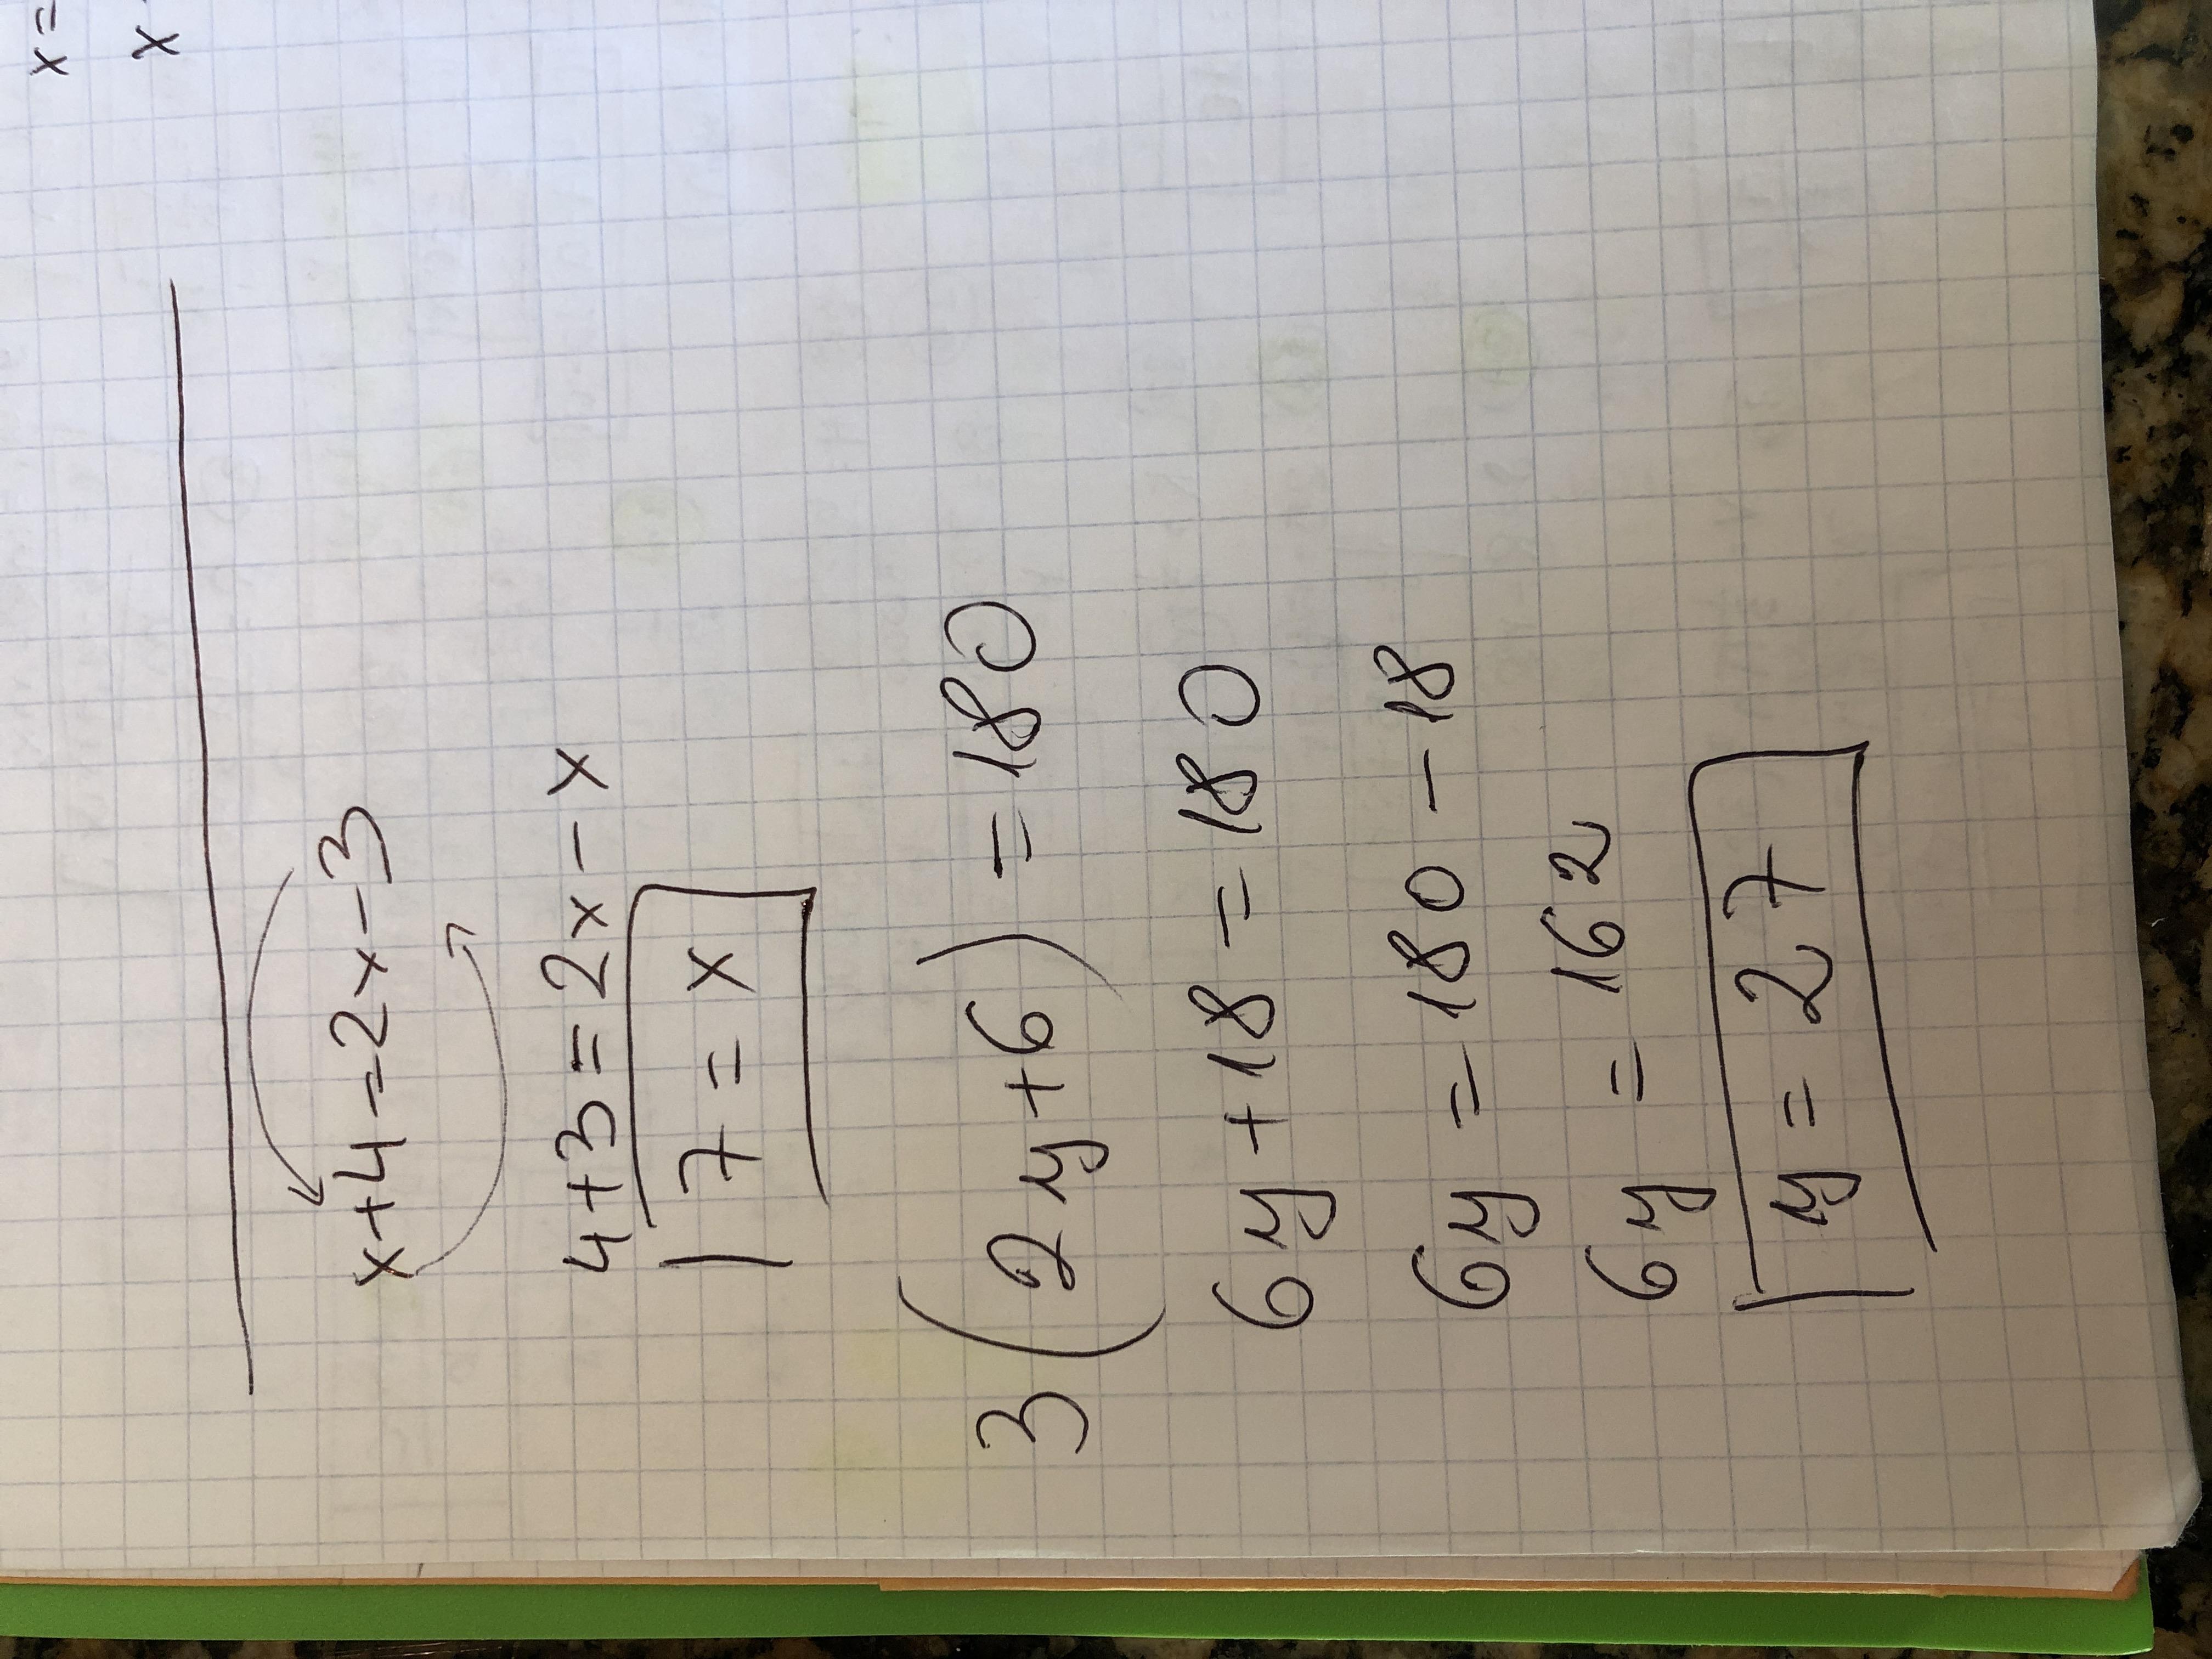 x=
x
x+4=2x-3
4+3=2x-x
7=x
3(2y+6)=180
6y+18=180
6y=180-18
6y=162
y=27